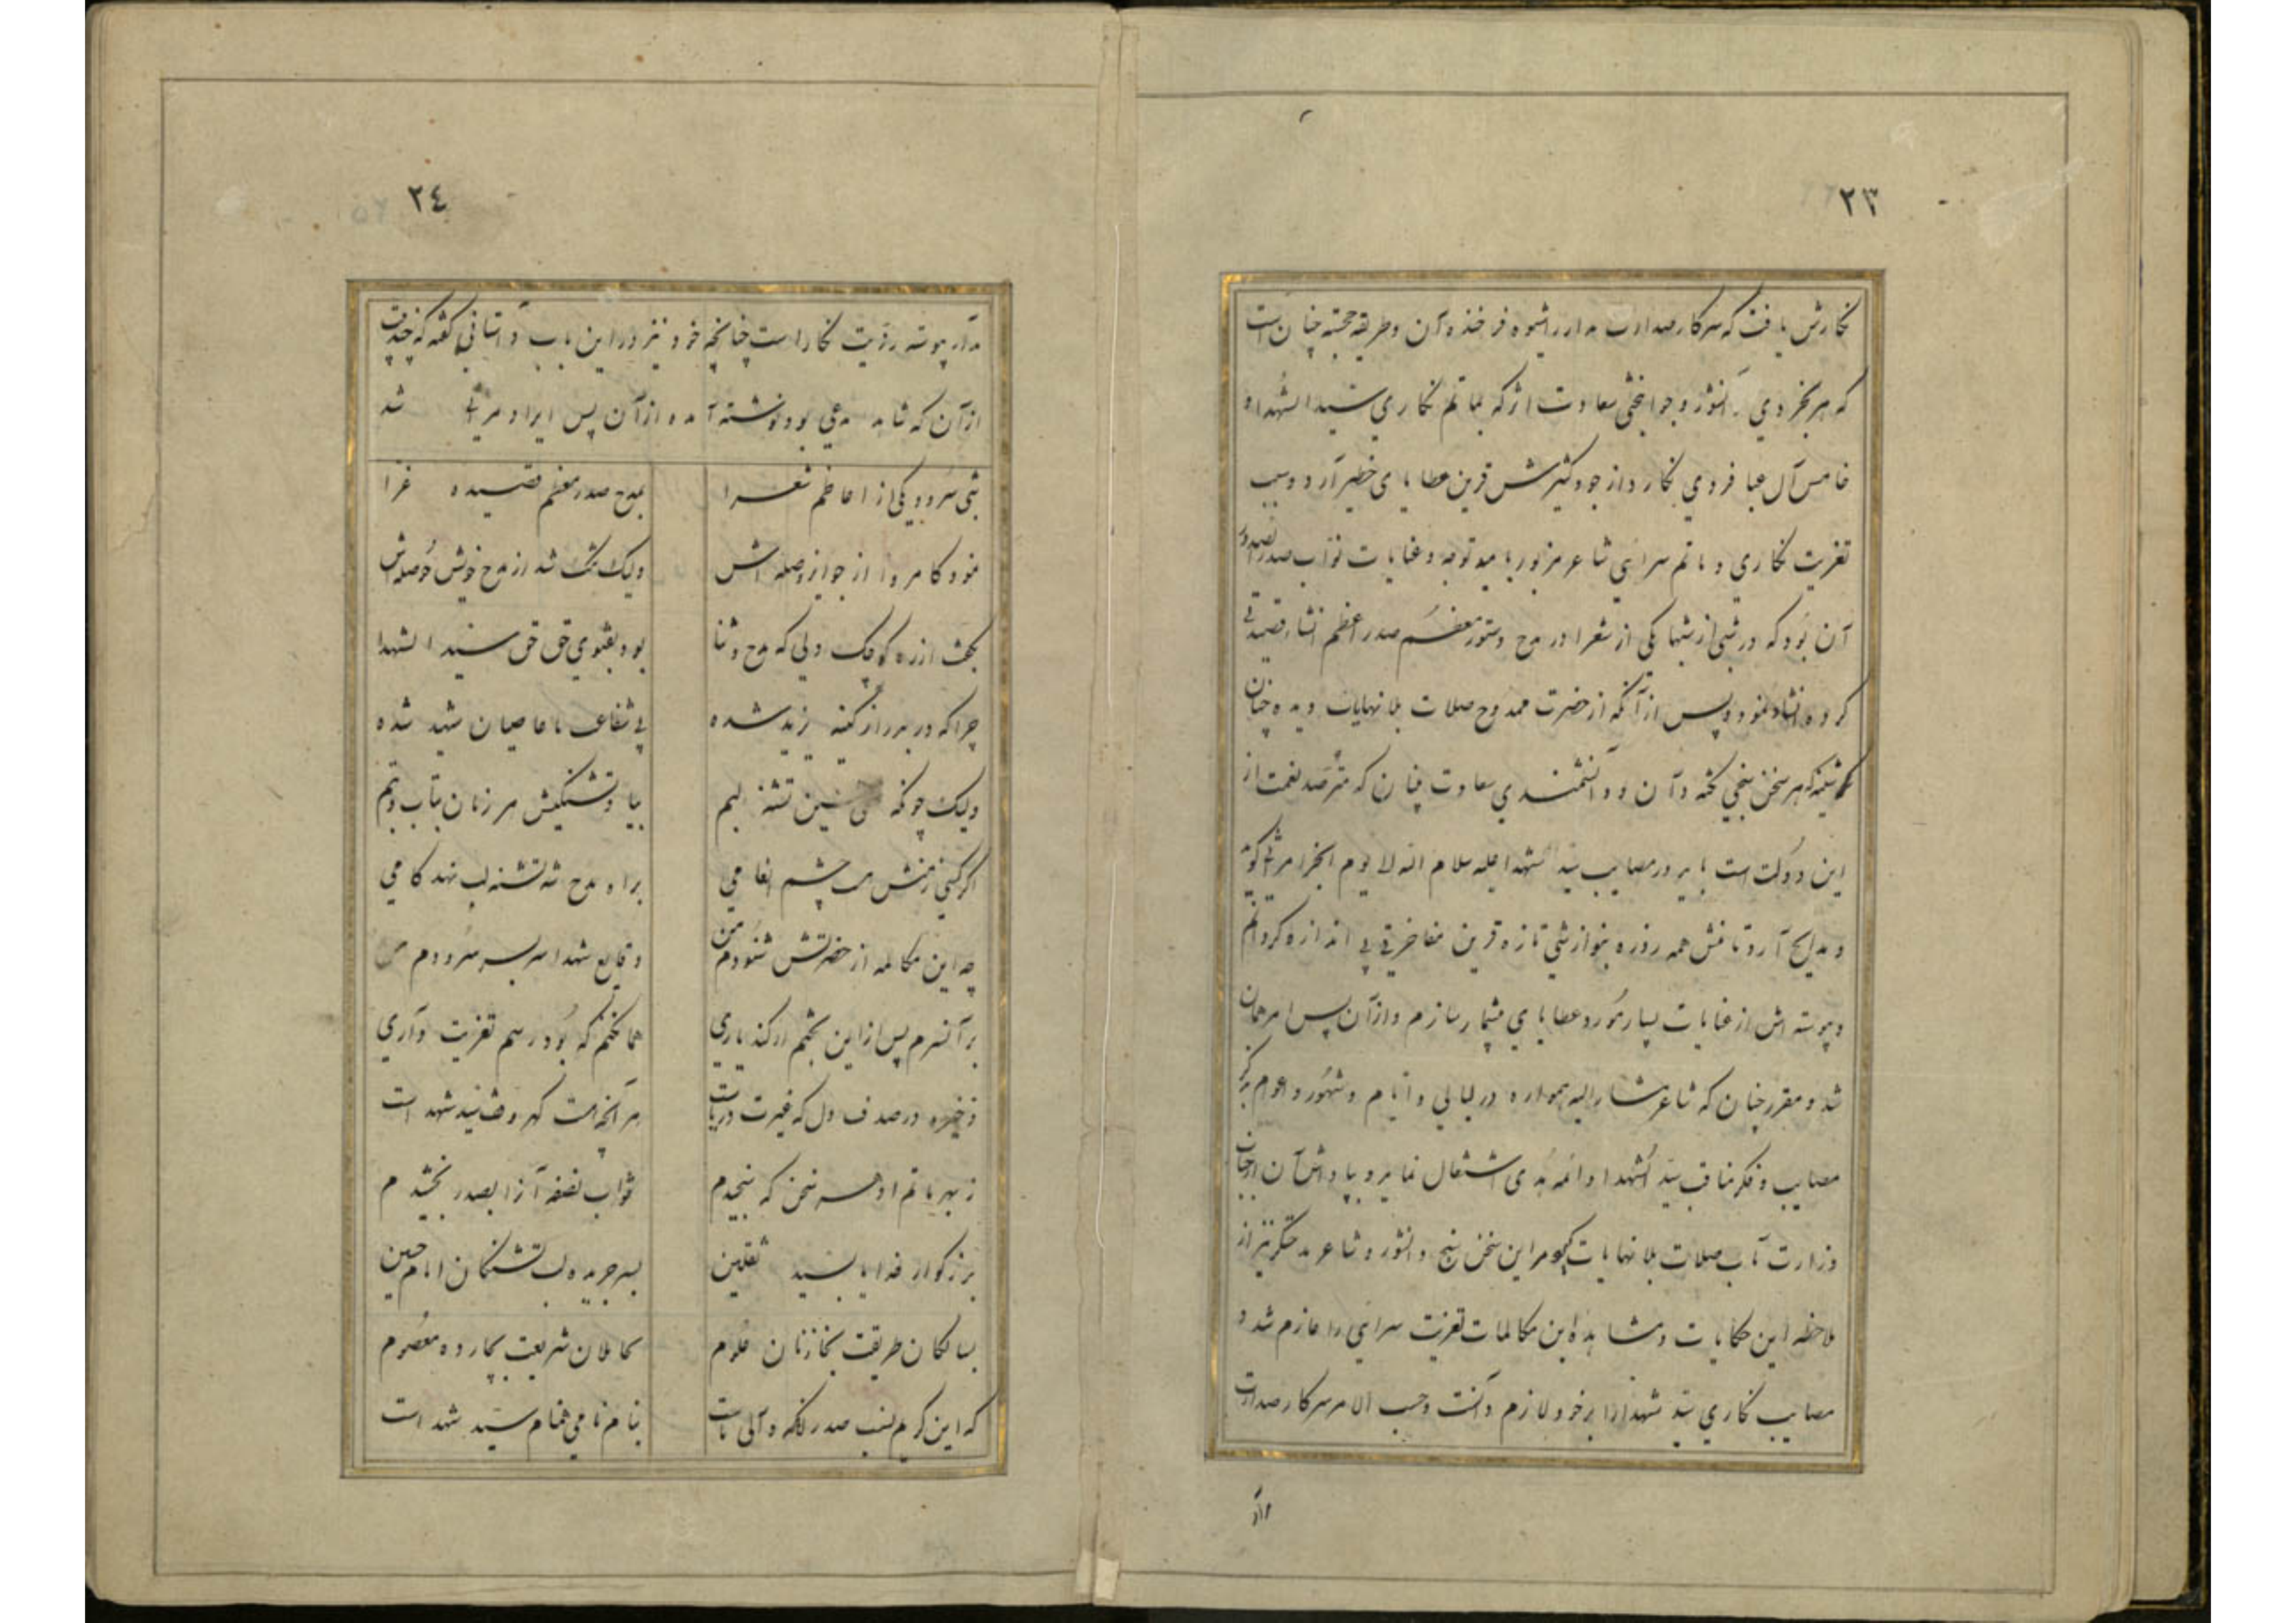 ٢٣
نگارش یافت که سرکار صدارت مدار را شیوه فرخنده آن و طریقه خجسته چنان است
که هر بخردی دانشور و جوانبختی سعادت اثر که بماتم نگاری سید الشهداء و
خامس آل عبا فردی نگارد از جود کثیرش قرین عطایای خطیر آرد و سبب
تعزیت نگاری و ماتم سرایی شاعر مزبور با میو توجه و عنایات نواب صدر الصدور
آن بود که در شبی از شبها یکی از شعرا در مدح دستور معظم صدر اعظم انشاء قصیدتی
کرده انشاد نمود و پس از آنکه از حضرت ممدوح صلات بلا نهایات دیده چنان
که هر سخن سنجی نکته دان و دانشمندی سعادت بنیان که مترصد نعمت از
این دولت است باید در مصایب سید الشهدا علیه سلام الله لا یوم الجزا مرثیه گوید
و مدایح آرد تا منش همه روزه بنوازشی تازه قرین مفاخرتی بی اندازه گردانم
و پیوسته اش از عنایات بسیار مورد عطایای بیشمار سازم و از آن پس امر همان
شد و مقرر چنان که شاعر مشار الیه همواره در لیالی و ایام و شهور و اعوام بذکر
مصایب و فکر مناقب سید الشهدا و ائمه هدی اشتغال نماید و بپاداش آن از جناب
وزارت مآب صلات بلا نهایات گیرد مر این سخن سنج دانشور و شاعر مدحتگر نیز از
ملاحظه این حکایات و مشاهده این مکالمات تعزیت سرایی را عازم شد و
مصایب نگاری سید شهدا را بر خود لازم دانست و حسب الامر سرکار صدارت
مدار
٢٤
مدار پیوسته رؤیت نگار است چنانچه خود نیز در این باب داستانی گفته که چند بیت
از آن که شاهد مدعی بود نوشته آمد و از آن پس ایراد مرثیه شد
شبی سرود یکی از اعاظم شعرا بمدح صدر معظم قصیده غرا
نمود کامروا از جوایز و صله اش ولیک تنگ شد از مدح خویش حوصله اش
بگفت از ره کوچک دلی که مدح و ثنا بود بفتوی حق حق سید الشهدا
چرا که در بر دراز کینه یزید شده پی شفاعت ما عاصیان شهید شده
ولیک چونکه حسین تشنه لبم بیاد تشنگیش هر زمان بتاب و تبم
اگر کسی ز منش هست چشم انعامی براه مدح شه تشنه لب نهد کامی
چه این مکالمه از حضرتش شنودم من وقایع شهدا سر بسر سرودم من
بر آنسرم پس از این بختم ار کند یاری هما نکنم که بود رسم تعزیت داری
ذخیره در صدف دل که غیرت دریاست هر آنچه هست گهر وقف سید شهداست
ز بهر ماتم او هر سخن که سنجیدم ثواب نصفه آنرا بصدر بخشیدم
بزرگوار خدایا بسید ثقلین بسر جریده لب تشنگان امام حسین
بسالکان طریقت بخازنان علوم بحاملان شریعت بچارده معصوم
که این کریم نسب صدر را که والی ماست بنام نامی همنام سید شهداست